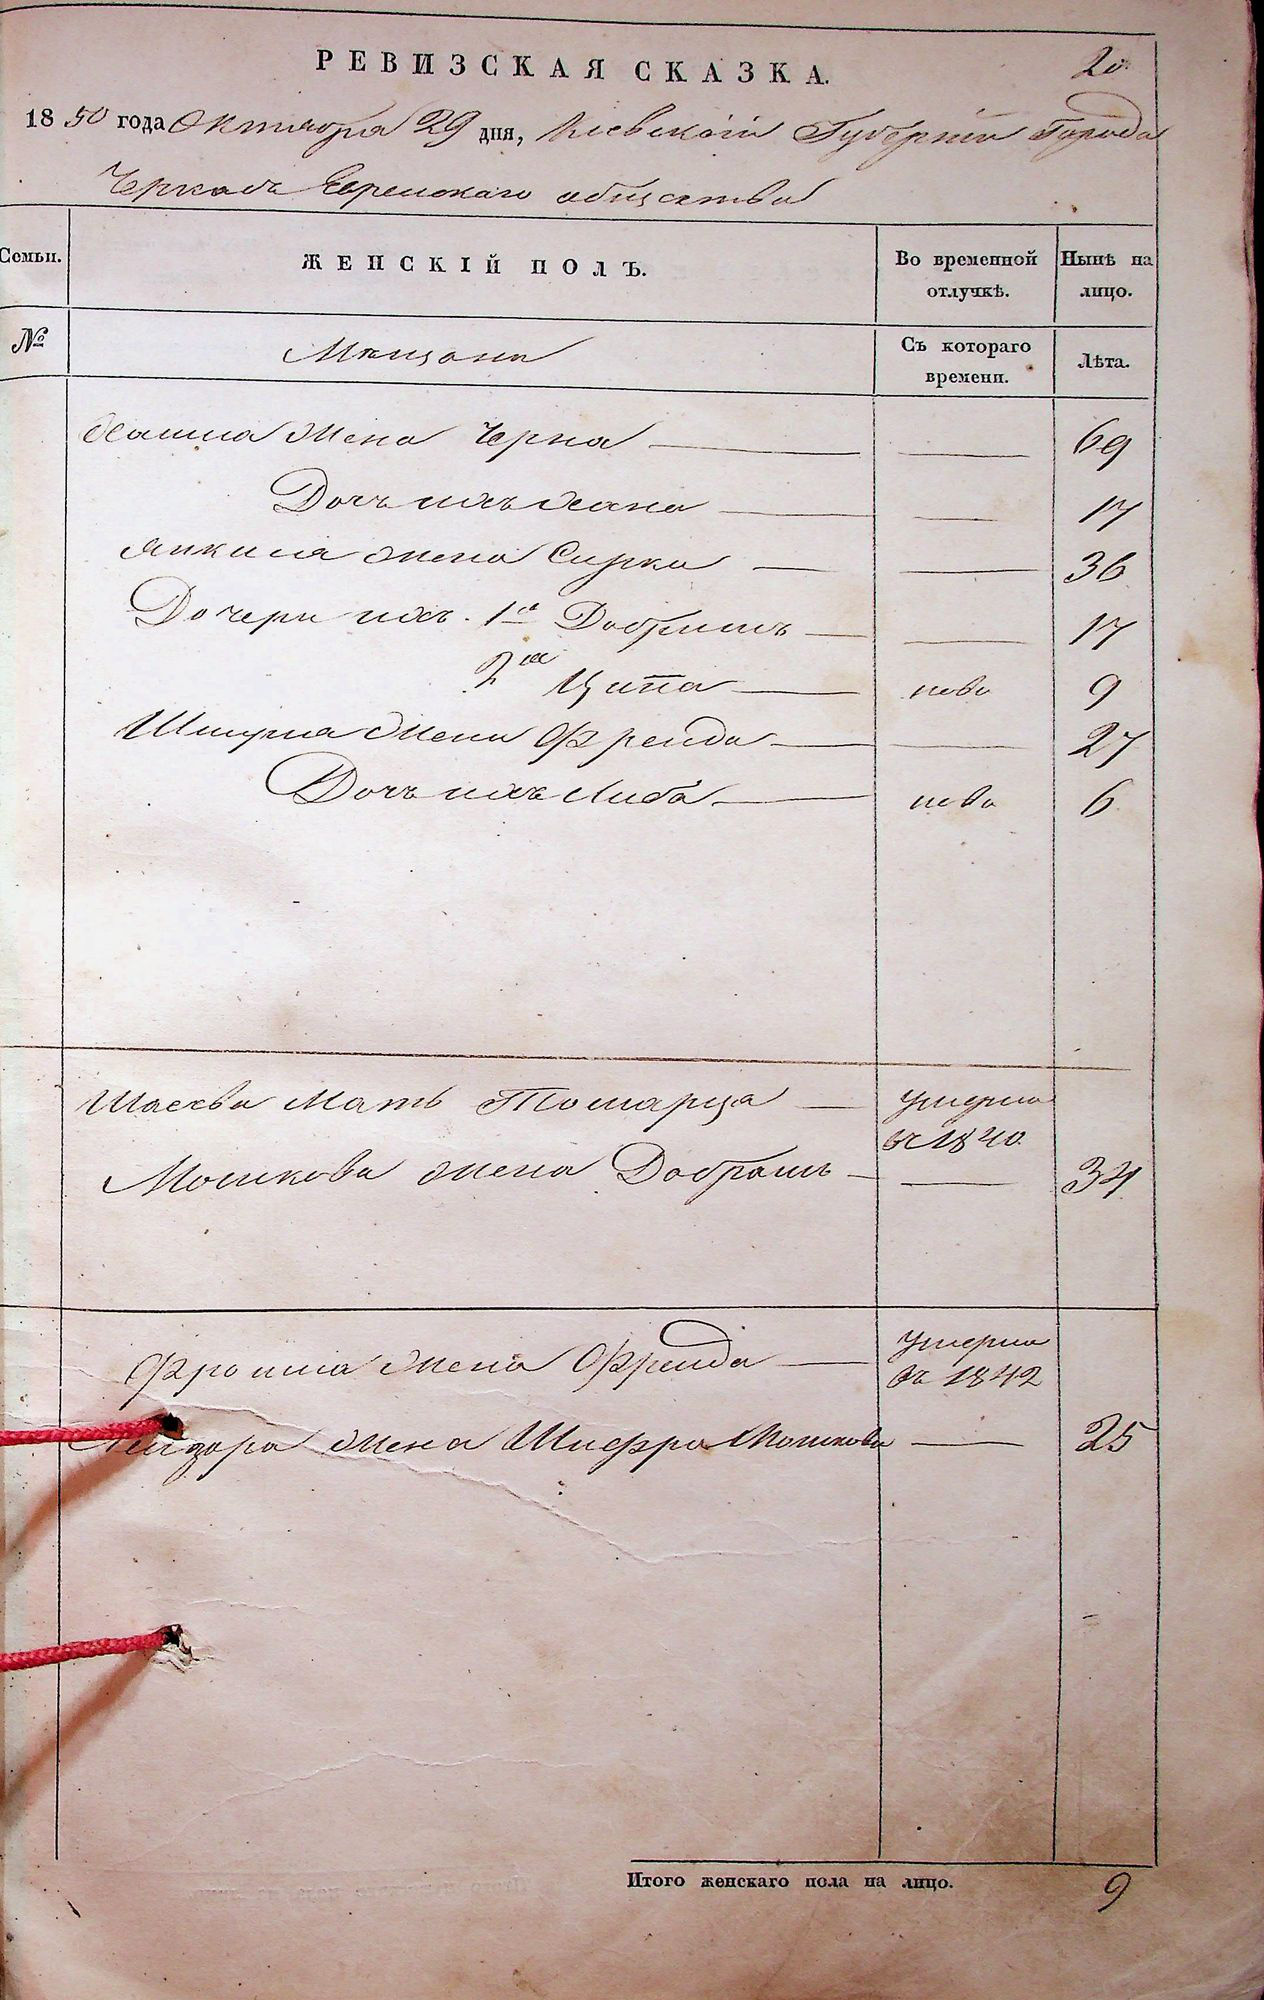 РЕВИЗСКАЯ СКАЗКА.
20.
1850 года Октября 29 дня, Киевской Губернии Города
Черкасъ Еврейскаго общества
Семьи.
ЖЕНСКІЙ ПОЛЪ.
Во временной отлучкѣ.
Нынѣ на лицо.
№
Мещане
Съ котораго времени.
Лѣта.
жена Черна 69
Дочь ихъ Хана 17
Янкиля жена Сирка 36
Дочери ихъ. 1я Добришъ 17
2я Ципа 9
Шмуля жена Фрейда 27
Дочь ихъ Либа 6
Мать умерла въ 1840.
Мошкова жена Добрашъ 34
Фроима жена Фрейда умерла въ 1842
жена Шифра Мошкова 25
Итого женскаго пола на лицо. 9